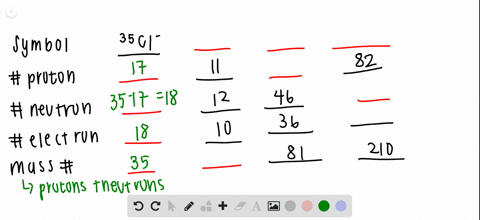 Symbol ³⁵Cl⁻
# proton 17 11 82
# neutron 35-17 = 18 12 46
# electrun 18 10 36
mass # 35 81 210
↳ protons + neutruns
A